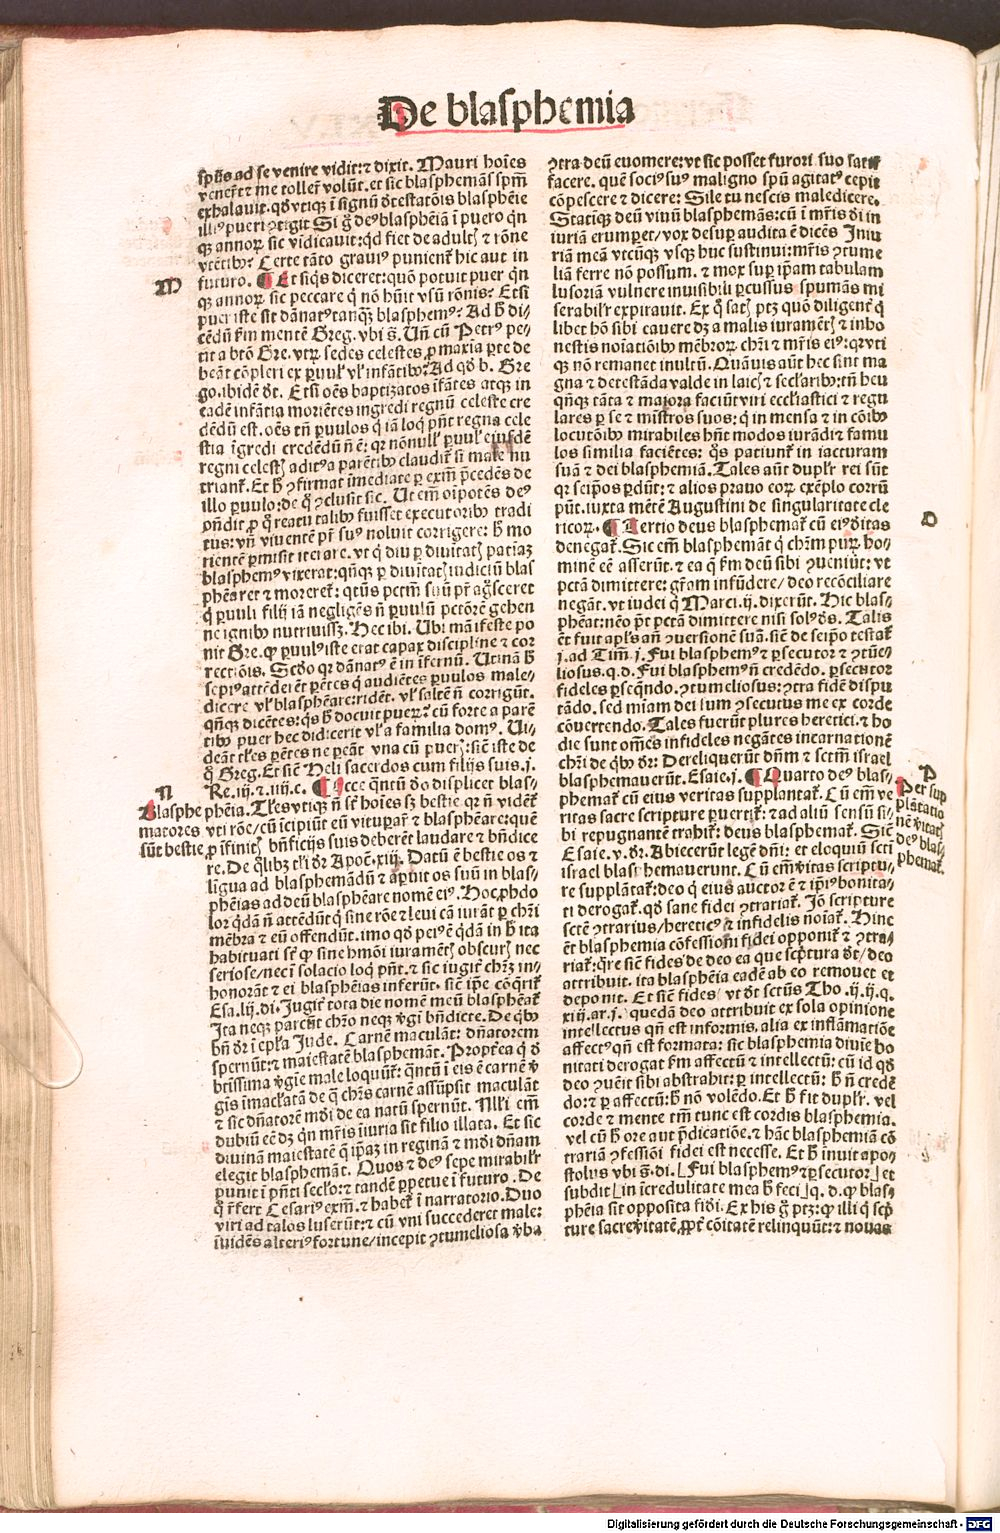 De blasphemia
spūs ad se venire vidit: ⁊ dixit. Mauri hoīes
venerūt ⁊ me toller volūt. et sic blasphemās spm̄
exhalauit. qđ vtiqꝫ ī signū detestatōis blasphēie
illiꝰ pueri ꝯtigit Si g̊ deꝰ blasphēiā ī puero qn
qꝫ annoꝝ sic vidicauit: qđ fiet de adultꝭ ⁊ rōne
vtētibꝰ? Certe tāto grauiꝰ punient̄ hic aut in
futuro. ¶ Et siqs diceret: quō potuit puer qn
qꝫ annoꝝ sic peccare q̇ nō hūit vsū rōnis? Etsi
puer iste sit dānatꝰ tanqꝫ blasphemꝰ? Ad h̄ di-
cēdū km̄ mentē Greg. vbi s̄. Un̄ cū Petrꝰ pe-
tit a btō Gre. vtꝝ sedes celestes ꝓ maxīa ꝑte de
beāt cōpleri ex ꝑuul̓ vl̓ infātibꝰ? Ad qđ b. Gre
go. ibidē dt̄. Etsi oēs baptizatos īfātes atqꝫ in
eadē infātia moriētes ingredi regnū celeste cre
dēdū est. oēs tn̄ ꝑuulos q̇ iā loq̇ pn̄t regna cele
stia īgredi credēdū n̄ ē: qꝛ nōnull̓ ꝑuul̓ eiusdē
regni celestꝭ aditꝰ a parētibꝰ claudit̄ si male nu
triant̄. Et h̄ ꝯfirmat īmediate ꝑ exm̄ p̄cedēs de
illo ꝑuulo: de q̊ ꝯclusit sic. Ut em̄ oīpotēs deꝰ
on̄dit ꝓ q̇ reatu talibꝰ fuisset executoribꝰ tradi
tus: vn̄ viuentē pr̄ suꝰ noluit corrigere: h̄ mo
rientē ꝑmisit iterare. vt q̇ diu ꝑ diuītatꝭ patiāz
blasphemꝰ vixerat: qn̄qꝫ ꝑ diuītatꝭ iudiciū blas
phēaret ⁊ moreret̄: qtūs pctm̄ suū pr̄ agsceret
q̇ ꝑuuli filij iā negligēs n̄ ꝑuulū pctōrē gehen
ne ignibꝰ nutriuissꝫ. Hec ibi. Ubi māifeste po
nit Gre. ꝙ ꝑuulꝰ iste erat capax discipline ⁊ cor
rectiōis. Scđo qꝛ dānatꝰ ē in īfernū. Utinā h̄
sepiꝰ attēderēt ꝑētes q̇ audiētes ꝑuulos male-
dicere vl̓ blasphēare: ridēt. vl̓ saltē n̄ corrigūt.
qn̄qꝫ dicētes: qs h̄ docuit pueꝝ? cū forte a parē
tibꝰ puer hec didicerit vl̓ a familia domꝰ. Ui-
deāt tl̓es ꝑētes ne ꝑeāt vna cū puerꝭ: sic̄ iste de
q̊ Greg. Et sic̄ Heli sacerdos cum filijs suis. j.
Re. iij. ⁊. iiij. c. ¶ Ecce qn̄tū đo displicet blas-
phēia. Tl̓es vtiqꝫ n̄ st̄ hoīes sꝫ bestie qꝛ n̄ vidēt̄
vti rōe/ cū īcipiūt eū vituꝑar̄ ⁊ blasphēare: quē
ꝓ īfinitꝭ bn̄ficijs suis deberēt laudare ⁊ bn̄dice
re. De qlibꝫ tl̓i dr̄ Apoc̄. xiij. Datū ē bestie os ⁊
līgua ad blasphemādū ⁊ aꝑuit os suū in blas-
phēias ad deū blasphēare nomē eiꝰ. Hoc ꝓhdo
loꝛ qdā n̄ attēdūt q̇ sine rōe ⁊ leui cā iurāt ꝑ chr̄i
mēbra ⁊ eū offendūt. imo qđ peiꝰ ē qdā in h̄ ita
habituati st̄ ꝙ sine hmōi iuramētꝭ obscurꝭ nec
seriose/ nec ī solacio loq̇ pn̄t. ⁊ sic iugit̄ chr̄z in-
honorāt ⁊ ei blasphēias inferūt. sic̄ ip̄e cōqrit̄
Esa. lij. di. Jugit̄ tota die nomē meū blasphēat̄
Ita neqꝫ parcūt chr̄o neqꝫ v̄gī bn̄dicte. De qibꝰ
bn̄ dr̄ ī epl̓a Jude. Carnē maculāt: dn̄atorem
spernūt: ⁊ maiestatē blasphemāt. Propt̄ea q̇ đ
btissima v̄gie male loquūt̄: qn̄tū ī eis ē carnē v̄
gīs īmaclatā de q̇ chr̄s carnē assūpsit maculāt
⁊ sic dn̄atorē mdi de ea natū spernūt. Nl̓i em̄
dubiū eē dꝫ qn mr̄is iīuria sit filio illata. Et sic
diuinā maiestatē q̇ ip̄az in reginā ⁊ mdi dn̄am
elegit blasphemāt. Quos ⁊ deꝰ sepe mirabilr̄
punit ī pn̄ti sec̄lo: ⁊ tandē ꝑpetue ī futuro. De
q̊ r̄fert Cesariꝰ exm̄. ⁊ habet̄ ī narratorio. Duo
viri ad talos luserūt: ⁊ cū vni succederet male:
īuidēs alteriꝰ fortune/ incepit ꝯtumeliosa v̄ba
M
N
Blasphe
matores
sūt bestie
ꝯtra deū euomere: vt sic posset furori suo satis
facere. quē sociꝰ suꝰ maligno spū agitatꝰ cepit
cōpescere ⁊ dicere: Sile tu nescis maledicere.
Statiqꝫ deū viuū blasphemās: cū ī mr̄is đi in
iuriā erumꝑet/ vox desuꝑ audita ē dicēs Iniu
riā meā vtcūqꝫ vsqꝫ huc sustinui: mr̄is ꝯtume
liā ferre nō possum. ⁊ mox suꝑ ip̄am tabulam
lusoriā vulnere inuisibili ꝑcussus spumās mi
serabilr̄ expirauit. Ex q̊ satꝭ ptꝫ quō diligent̄ q̇
libet hō sibi cauere dꝫ a malis iuramētꝭ ⁊ inho
nestis noīatiōibꝰ mēbroꝝ chr̄i ⁊ mr̄is eiꝰ: qꝛ vti
qꝫ nō remanet inultū. Quāuis aūt hec sint ma
gna ⁊ detestāda valde in laicꝭ ⁊ sec̄laribꝰ: tn̄ heu
qn̄qꝫ tāta ⁊ maiora faciūt viri eccl̓iastici ⁊ regu
lares ꝑ se ⁊ mīstros suos: q̇ in mensa ⁊ in cōibꝰ
locutōibꝰ mirabiles hn̄t modos iurādi ⁊ famu
los similia faciētes: q̊s patiunt̄ in iacturam
suā ⁊ dei blasphemiā. Tales aūt duplr̄ rei sūt
qꝛ seip̄os ꝑdūt: ⁊ alios prauo eoꝝ exēplo corrū
pūt. iuxta mētē Augustini de singularitate cle
ricoꝝ. ¶ Tertio deus blasphemat̄ cū eiꝰ đitas
denegat̄. Sic em̄ blasphemāt q̇ chr̄m puꝝ ho-
minē eē asserūt. ⁊ ea q̇ km̄ deū sibi ꝯueniūt: vt
pctā dimittere: gr̄am infūdere/ deo recōciliare
negāt. vt iudei q̇ Marci. ij. dixerūt. Hic blas-
phēat: nēo pt̄ pctā dimittere nisi solꝰ đs. Talis
ēt fuit apl̓s an̄ ꝯuersionē suā. sic̄ de seip̄o testat̄
j. ad Tim̄. j. Fui blasphemꝰ ⁊ ꝑsecutor ⁊ ꝯtūe-
liosus. q. d. Fui blasphemꝰ n̄ credēdo. ꝑsecutor
fideles ꝑseqn̄do. ꝯtumeliosus: ꝯtra fidē dispu
tādo. sed miam dei sum ꝯsecutus me ex corde
cōuertendo. Tales fuerūt plures heretici. ⁊ ho
die sunt om̄es infideles negātes incarnationē
chr̄i de qibꝰ dr̄: Dereliquerūt dn̄m ⁊ sctm̄ israel
blasphemauerūt. Esaie. j. ¶ Quarto deꝰ blas-
phemat̄ cū eius veritas supplantat̄. Cū em̄ ve
ritas sacre scripture ꝑuertit̄: ⁊ ad aliū sensū si-
bi repugnantē trahit̄: deus blasphemat̄. Sic̄
Esaie. v. dr̄. Abiecerūt legē dn̄i: et eloquiū scti
israel blasphemauerunt. Cū em̄ v̄itas scriptu-
re supplātat̄: deo q̇ eius auctor ē ⁊ ip̄iꝰ bonita-
ti derogat̄. qđ sane fidei ꝯtrariat̄. Jō scripture
sctē ꝯtrarius/ hereticꝰ ⁊ infidelis noīat̄. Hinc
ēt blasphemia cōfessioni fidei opponit̄ ⁊ ꝯtra-
riat̄: qꝛ sic̄ fides de deo ea que sc̄ptura dt̄/ deo
attribuit. ita blasphēia eadē ab eo remouet et
deponit. Et sic̄ fides/ vt dt̄ sctūs Tho. ij. ij. q.
xiij. ar. j. quedā deo attribuit ex sola opinione
intellectus qn̄ est informis. alia ex inflāmatiōe
affectꝰ qn̄ est formata: sic blasphemia diuīe bo
nitati derogat km̄ affectū ⁊ intellectū: cū id qđ
deo ꝯuēit sibi abstrahit: ꝑ intellectū: h̄ n̄ credē
do: ⁊ ꝑ affectū: h̄ nō volēdo. Et h̄ fit duplr̄. vel
corde ⁊ mente tm̄ tunc est cordis blasphemia.
vel cū h̄ ore aut p̄dicatiōe. ⁊ hāc blasphemiā cō
trariā ꝯfessiōi fidei est necesse. Et h̄ inuit apo-
stolus vbi s̄. di. ⌊Fui blasphemꝰ ⁊ ꝑsecutor⌋ et
subdit ⌊in īcredulitate mea h̄ feci⌋ q. d. ꝙ blas-
phēia sit opposita fidi. Ex his g̊ ptꝫ: ꝙ illi q̇ scp̄
ture sacre v̄itatē, ꝓpt̄ cōitatē relinquūt: ⁊ nouas
O
P
Per sup
plātatio
nē v̄itatꝭ
deꝰ blas-
phemat̄.
Digitalisierung gefördert durch die Deutsche Forschungsgemeinschaft - DFG